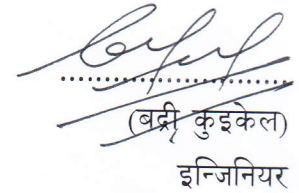 (बद्री कुइकेल)
इन्जिनियर